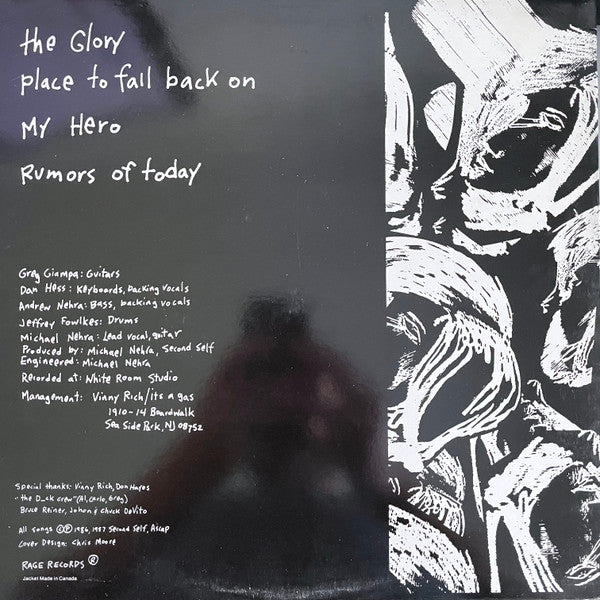 the Glory
place to fall back on
My Hero
Rumors of today
Greg Giampa: Guitars
Dan Hess: Keyboards, backing vocals
Andrew Nehra: Bass, backing vocals
Jeffrey Fowlkes: Drums
Michael Nehra: Lead vocal, guitar
Produced by: Michael Nehra, Second Self
Engineered: Michael Nehra
Recorded at: White Room Studio
Management: Vinny Rich/its a gas
1910-14 Boardwalk
Sea Side Park, NJ 08752
Special thanks: Vinny Rich, Don
"the D_ck crew" (Al, Carlo, Greg)
Bruce Reiner, & Chuck DeVito
All songs © ℗ 1986, 1987 Second Self, Ascap
Cover Design: Chris Moore
RAGE RECORDS ®
Jacket Made in Canada